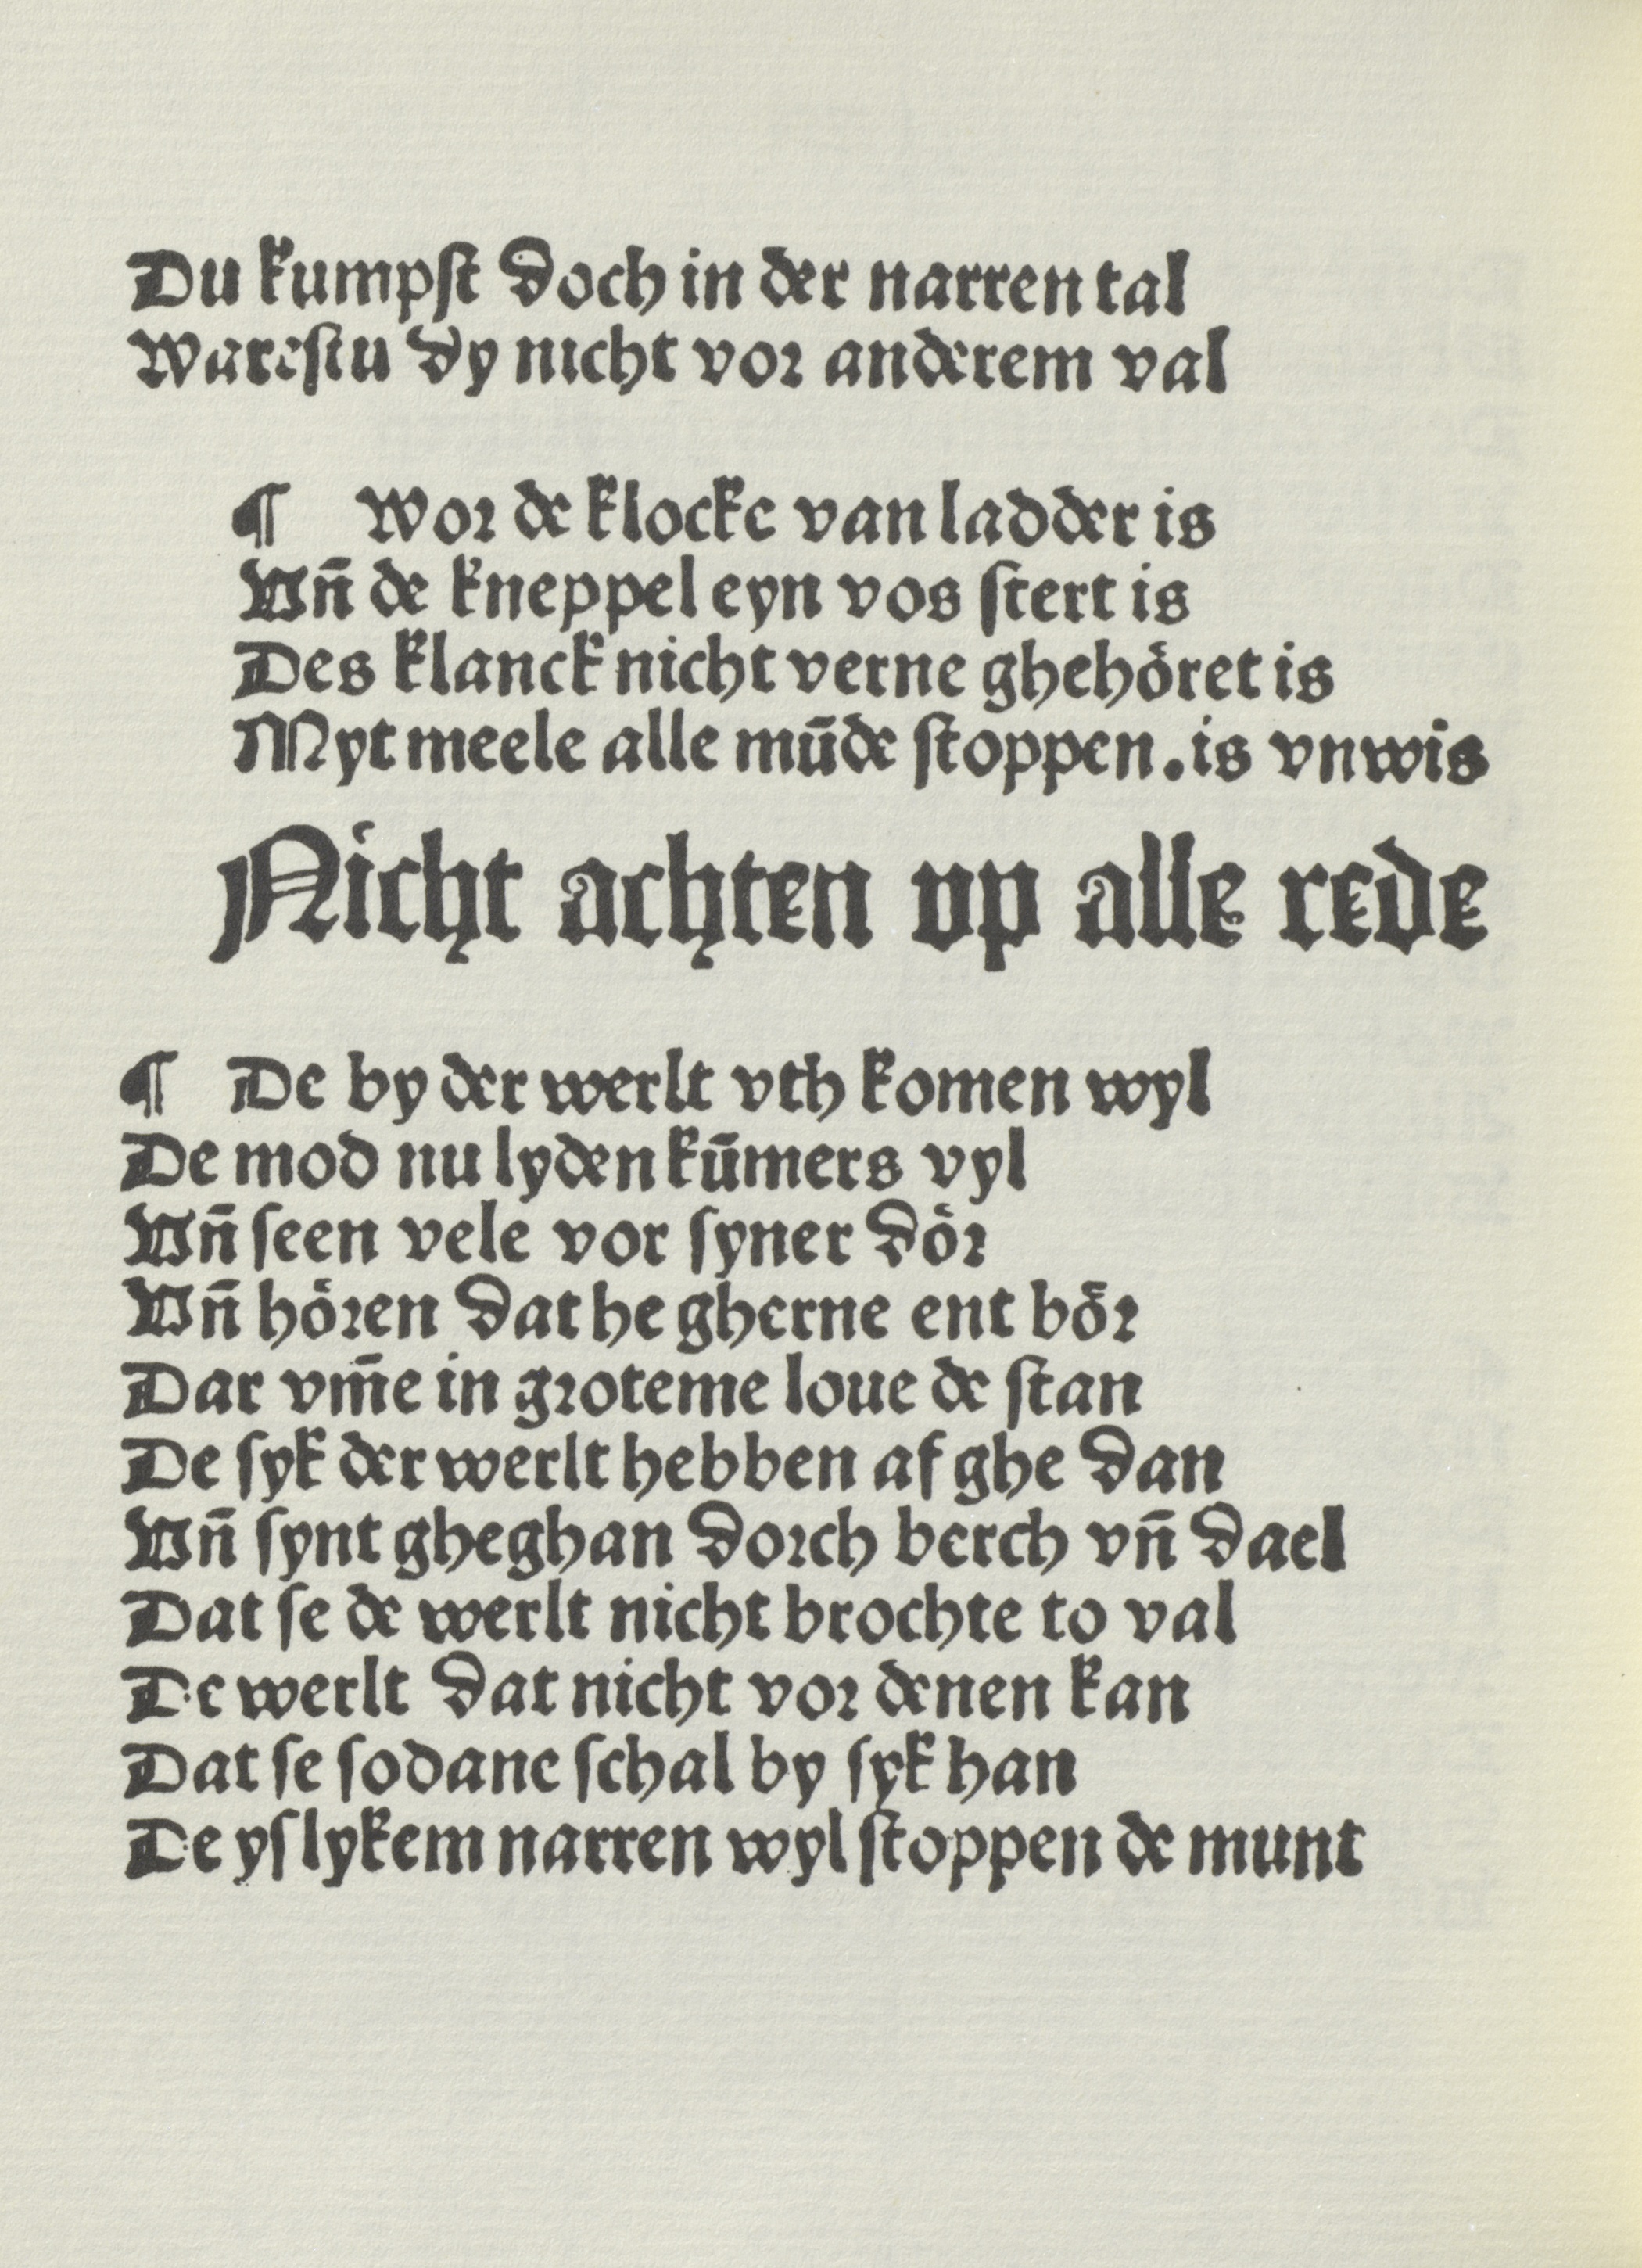 Du kumpſt doch in der narren tal
Wareſtu dy nicht vor anderem val
¶ Wor de klocke van ladder is
Vn̄ de kneppel eyn vos ſtert is
Des klanck nicht verne ghehoͤret is
Myt meele alle mūde ſtoppen. is vnwis
Nicht achten vp alle rede
¶ De by der werlt vth komen wyl
De mod nu lyden kūmers vyl
Vn̄ ſeen vele vor ſyner doͤr
Vn̄ hoͤren dat he gherne ent boͤr
Dar vm̄e in groteme loue de ſtan
De ſyk der werlt hebben af ghe dan
Vn̄ ſynt gheghan dorch berch vn̄ dael
Dat ſe de werlt nicht brochte to val
De werlt dat nicht vor denen kan
Dat ſe ſodane ſchal by ſyk han
De yſlykem narren wyl ſtoppen de munt